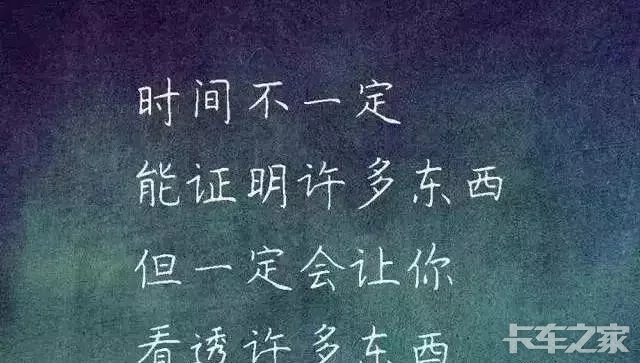 时间不一定
能证明许多东西
但一定会让你
看透许多东西
卡车之家